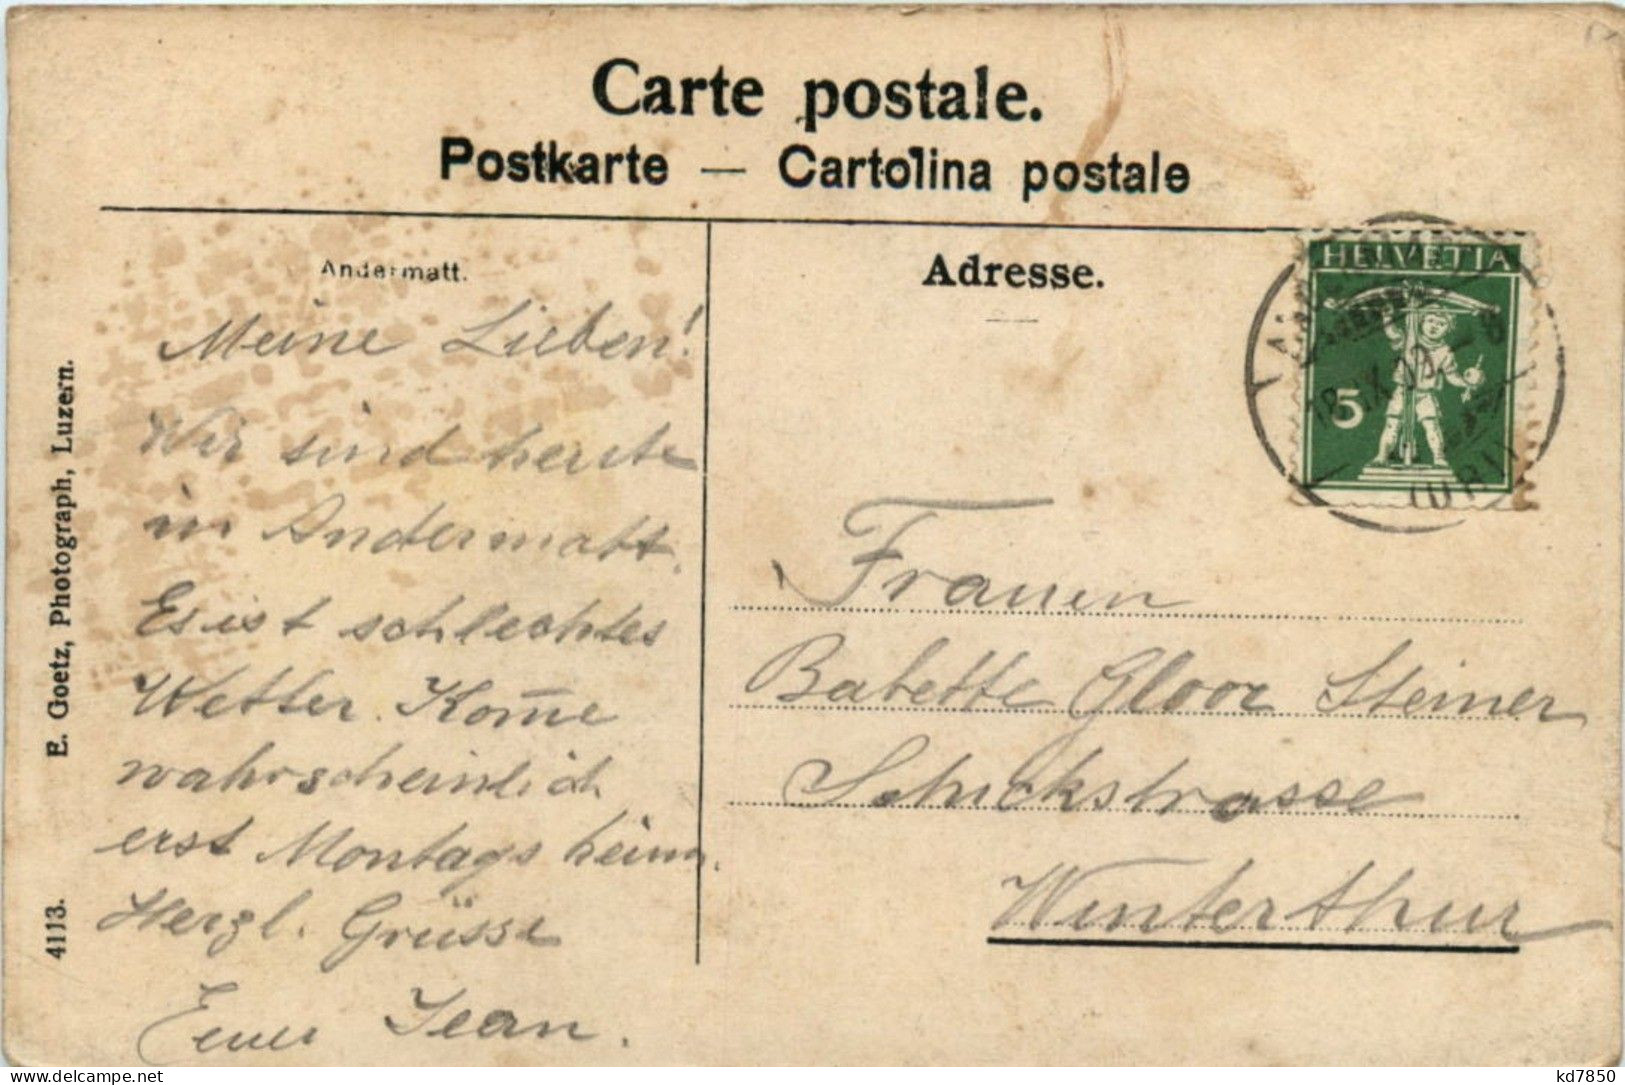 Carte postale.
Postkarte — Cartolina postale
Andermatt.
Meine Lieben!
Wir sind heute
in Andermatt.
Es ist schlechtes
Wetter. Kom̅e
wahrscheinlich
erst Montags heim.
Herzl. Grüsse
Euer Jean.
E. Goetz, Photograph, Luzern.
4113.
Adresse.
HELVETIA
5
(URI)
Frauen
Babette Gloor Steiner
Schickstrasse
Winterthur
delcampe.net
kd7850